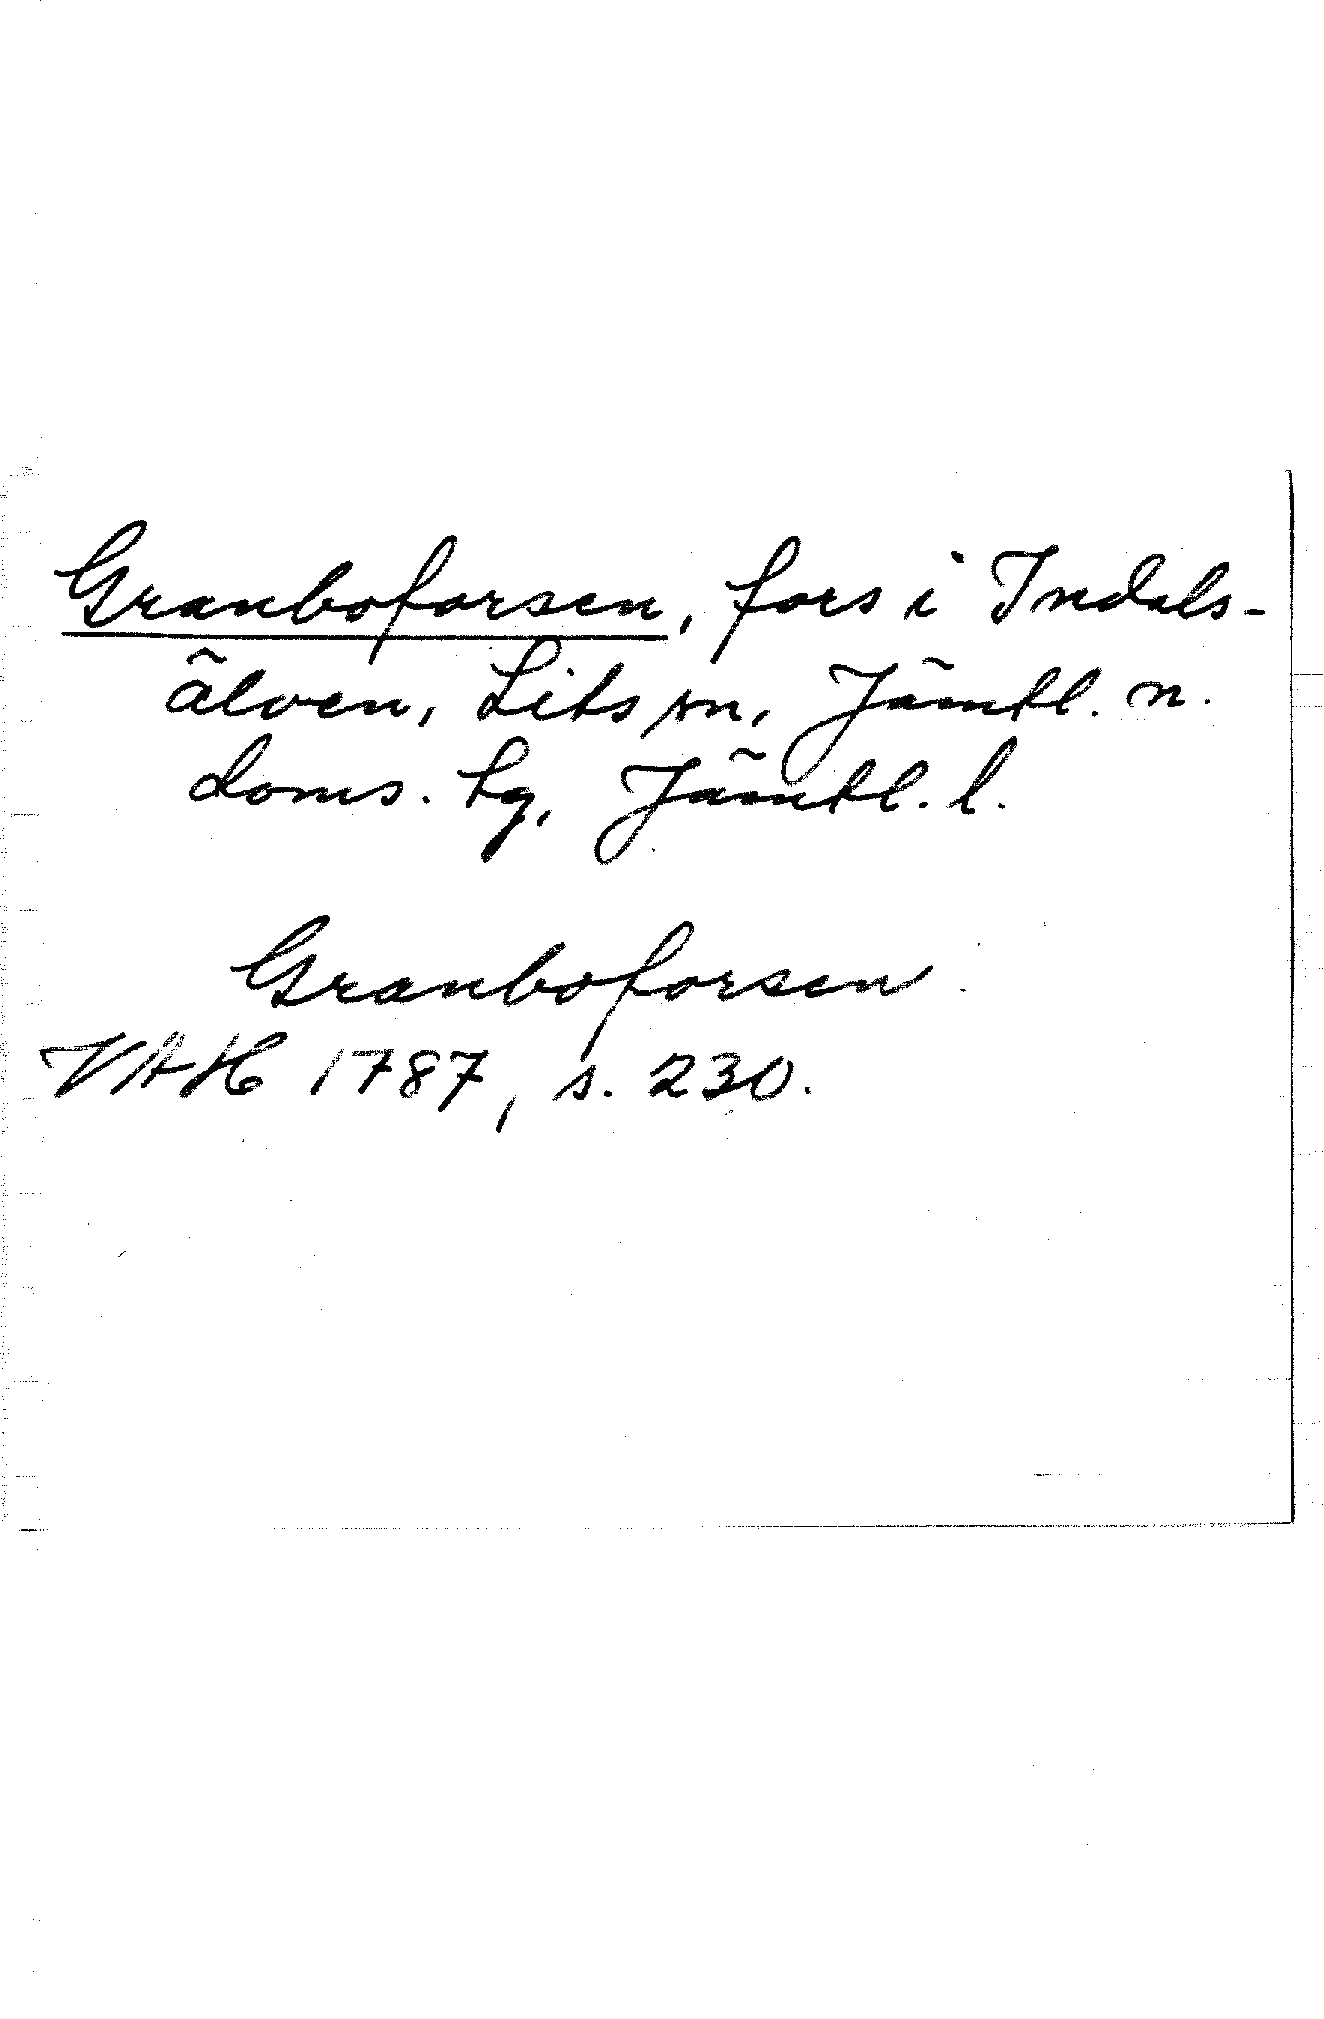 Granboforsen, fors i Indals-
älven, Lits sn, Jämtl. n.
doms. tg, Jämtl. l.
Granboforsen.
VAH 1787, s. 230.